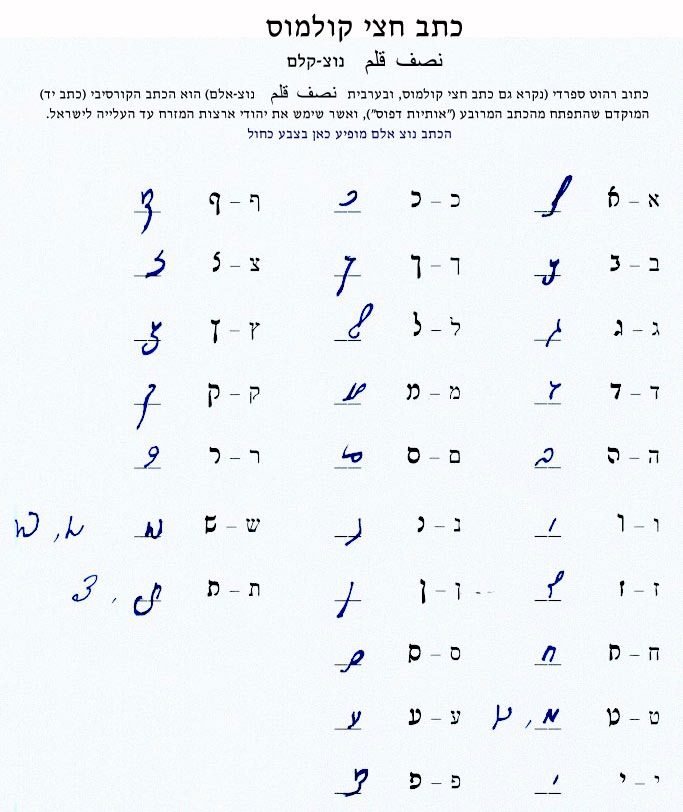 כתב חצי קולמוס
نصف قلم נוצ-קלם
כתוב רהוט ספרדי (נקרא גם כתב חצי קולמוס, ובערבית نصف قلم נוצ-אלם) הוא הכתב הקורסיבי (כתב יד)
המוקדם שהתפתח מהכתב המרובע ("אותיות דפוס"), ואשר שימש את יהודי ארצות המזרח עד העלייה לישראל.
הכתב נוצ אלם מופיע כאן בצבע כחול
א – א כ – כ ף – ף
ב – ב ך – ך צ – צ
ג – ג ל – ל ץ – ץ
ד – ד מ – מ ק – ק
ה – ה ם – ם ר – ר
ו – ו נ – נ ש – ש
ז – ז ן – ן ת – ת
ח – ח ס – ס
ט – ט ע – ע
י – י פ – פ